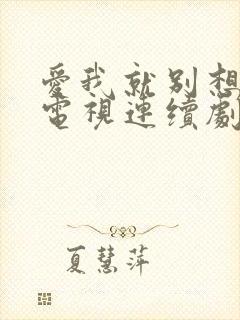 愛我就别想
電視連續劇
夏慧萍